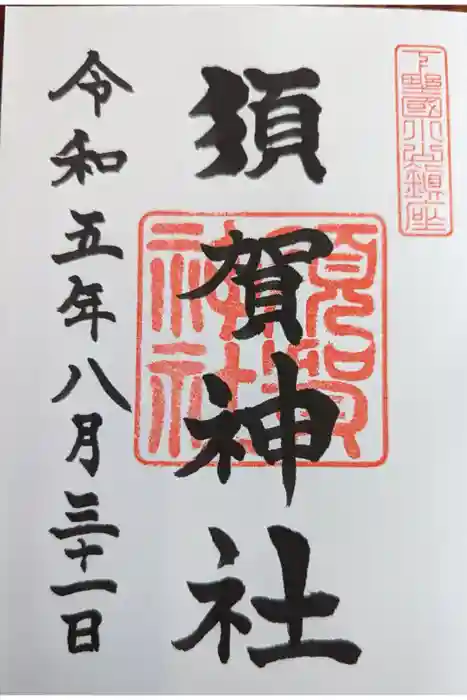 下野國小山鎮座
須賀神社
令和五年八月三十一日